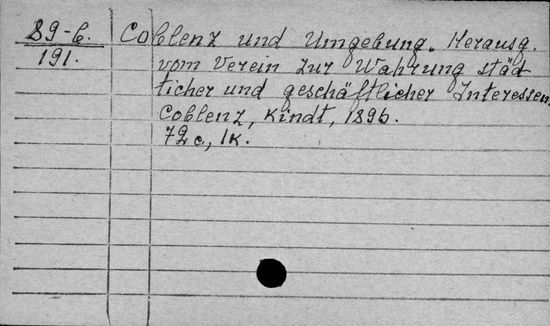 89-6.
191.
Coblenz und Umgebung. Herausg.
vom Verein zur Wahrung städ
ticher und geschäftlicher Interessen.
Coblenz, Kindt, 1896.
72 c., 1k.